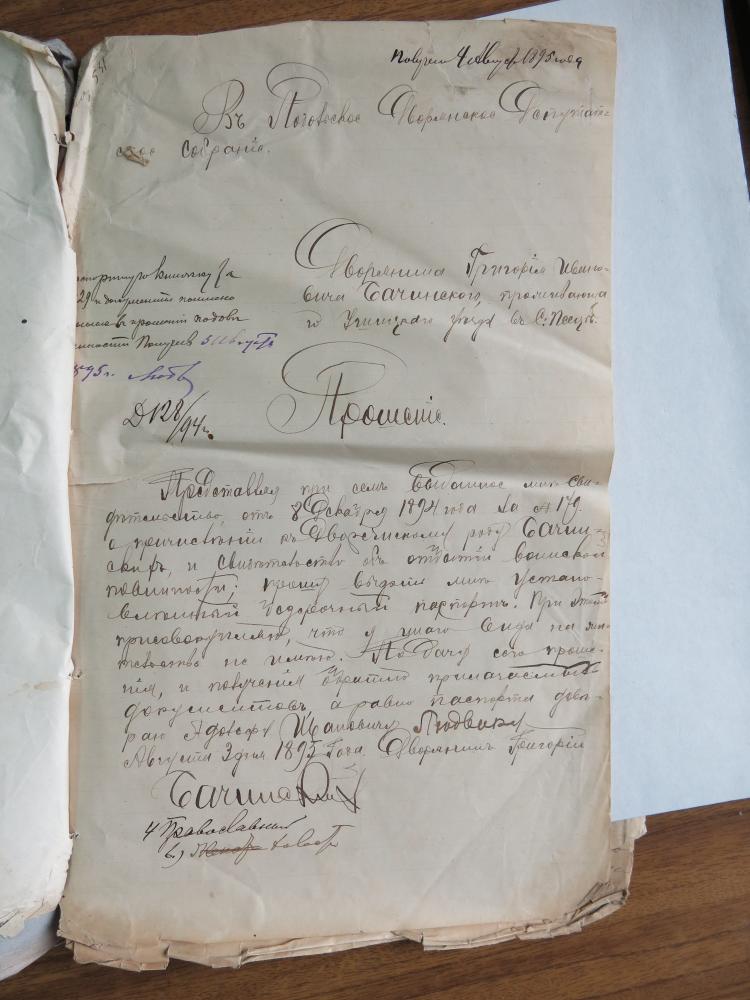 Получено 4 Августа 1895 года
Въ Подольское Дворянское Депутат-
ское Собраніе.
Дворянина Григорія Ивано-
вича Бачинского, проживающа
го Ушицкаго уезда въ с.
Прошеніе.
29 и документы
прошеніи
Получено 5 Августа
895 г. Людв
Д128/94 г.
Представляя при семъ выданное мнѣ сви-
дѣтельство, отъ 8 Декабря 1894 года за № 179
о причисленіи къ Дворянскому роду Бачин-
скихъ, и свидѣтельство объ отбытіи воинской
повинности; прошу выдать мнѣ устано-
вленный безсрочный паспортъ. При этомъ
присовокупляю, что я иного вида на жи-
тельство не имѣю. Подачу сего проше-
нія, и полученія обратно прилагаемыхъ
документовъ, а равно паспорта довѣ-
ряю Адольфу Ивановичу Людвику
Августа 3 дня 1895 года. Дворянинъ Григорій
Бачинский
Православный
холостъ